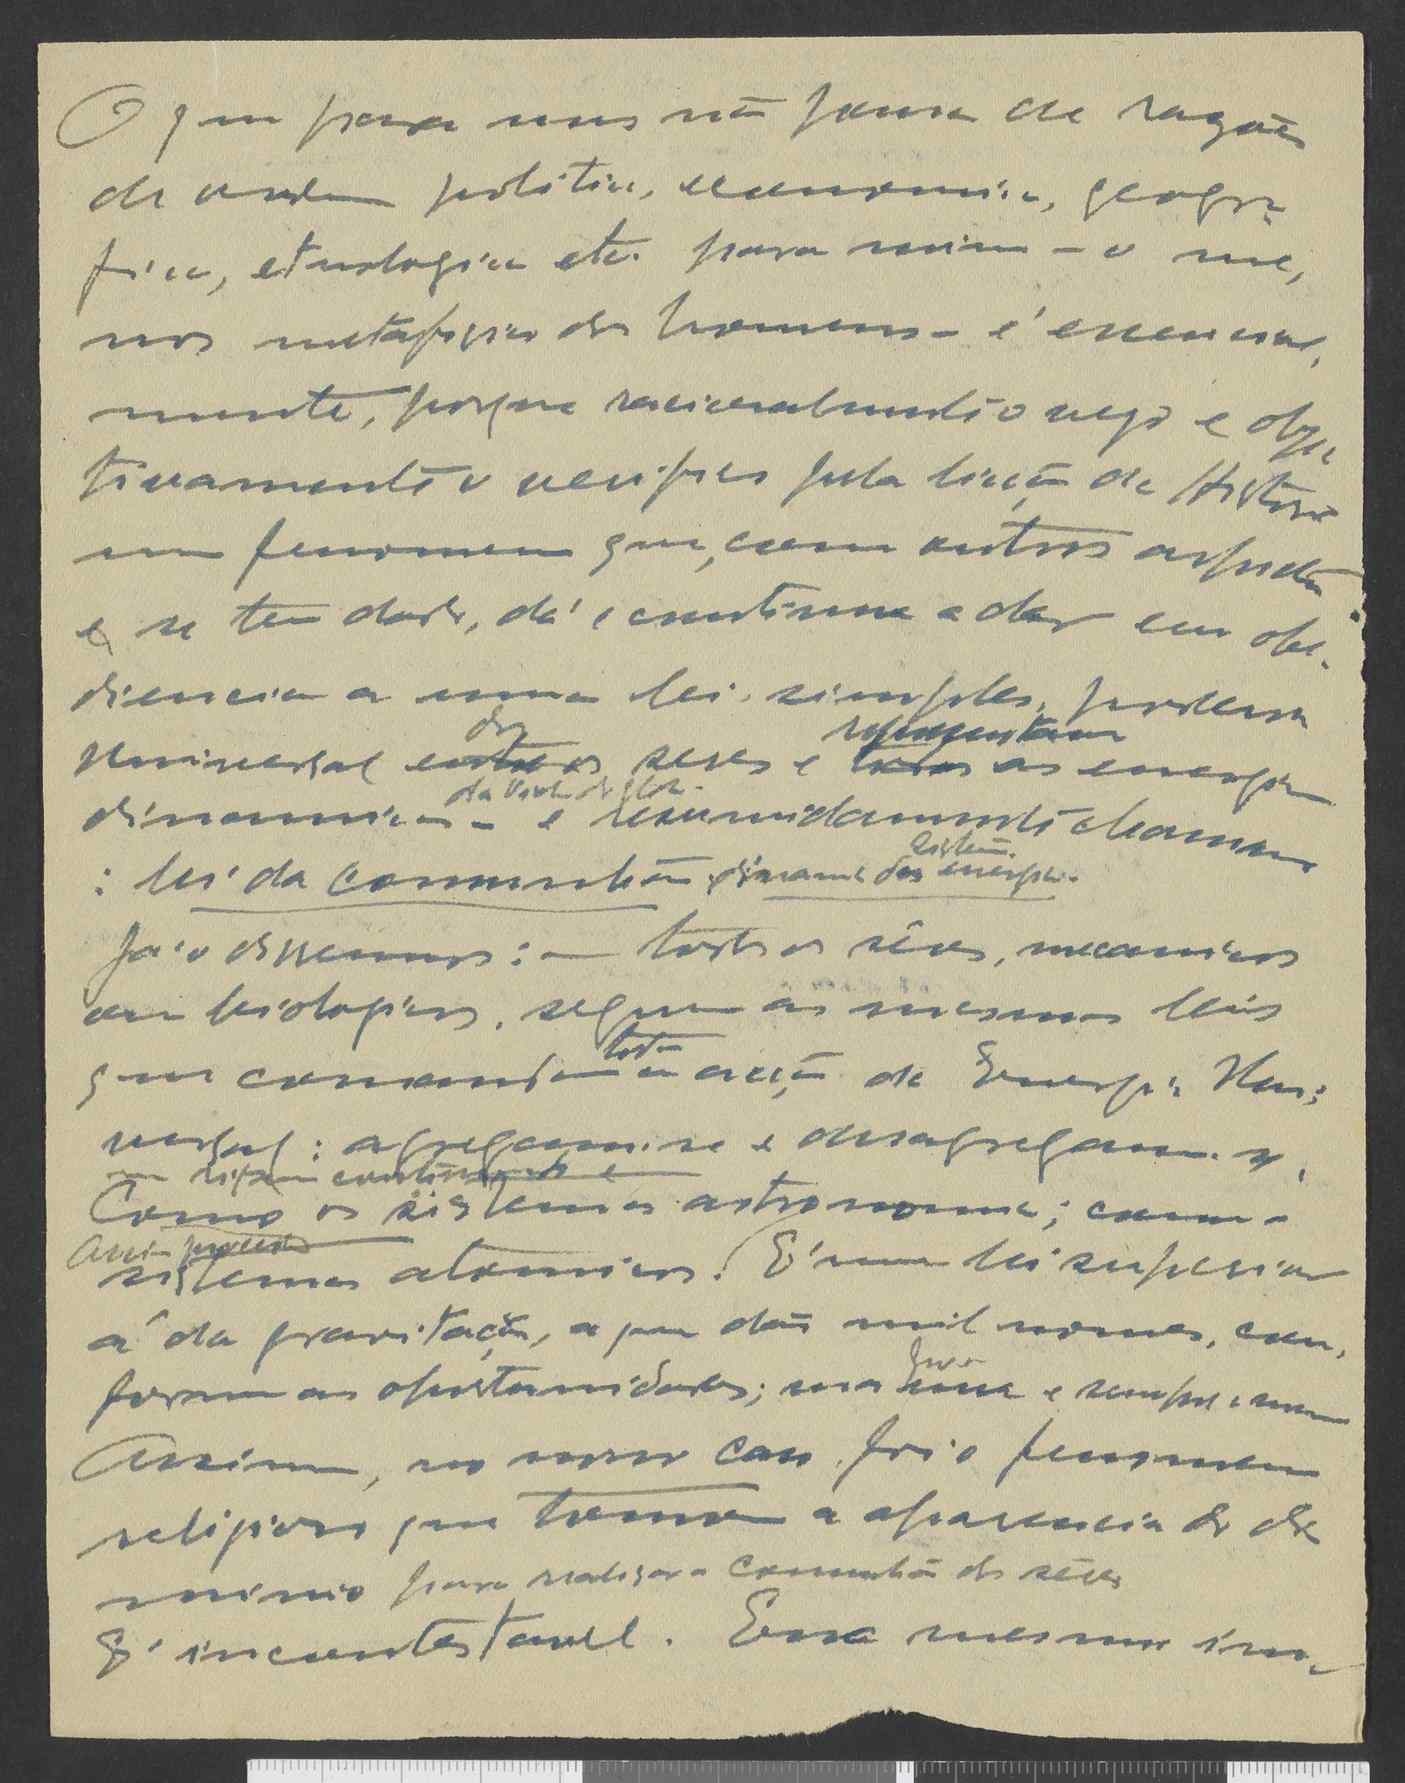 O que para uns não passa de razões
de ordem politica, economica, geogra-
fica, etnologica etc. para mim - o me-
nos metafisico dos homens - é essencial-
mente, porque racionalmente o vejo e objec-
tivamente o verifico pela lição da Historia
um fenomeno que, com outros aspectos
e se tem dado, dá e continua a dar em obe-
diencia a uma lei simples,
Universal dos seres e representam as energias
dinamicas - e resumidamente chamamos
: lei da comunhão dinamica das energias.
Já o dissemos: - todos os sêres, mecanicos
ou biologicos, seguem as mesmas leis
que comandam toda a acção da Energia Uni-
versal: agregam-se e desagregam-se,
Como os sistemas astronomicos; como o
Assim
sistemas atomicos. É uma lei superior
á da gravitação, a que dão mil nomes, con-
forme as oportunidades; mas é sempre a mesma
Assim, no nosso caso, foi o fenomeno
religioso que tomou a aparencia do do-
minio para realizar a comunhão dos sêres
É incontestavel. Essa mesma